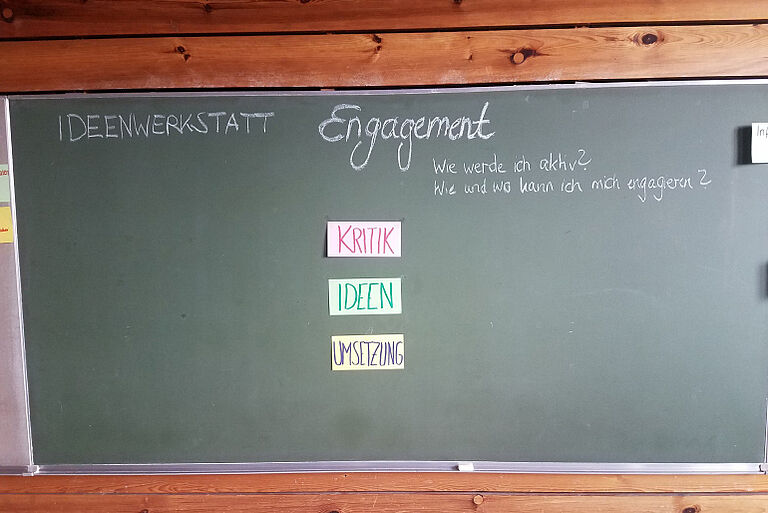 IDEENWERKSTATT Engagement
Wie werde ich aktiv?
Wie und wo kann ich mich engagieren?
KRITIK
IDEEN
UMSETZUNG